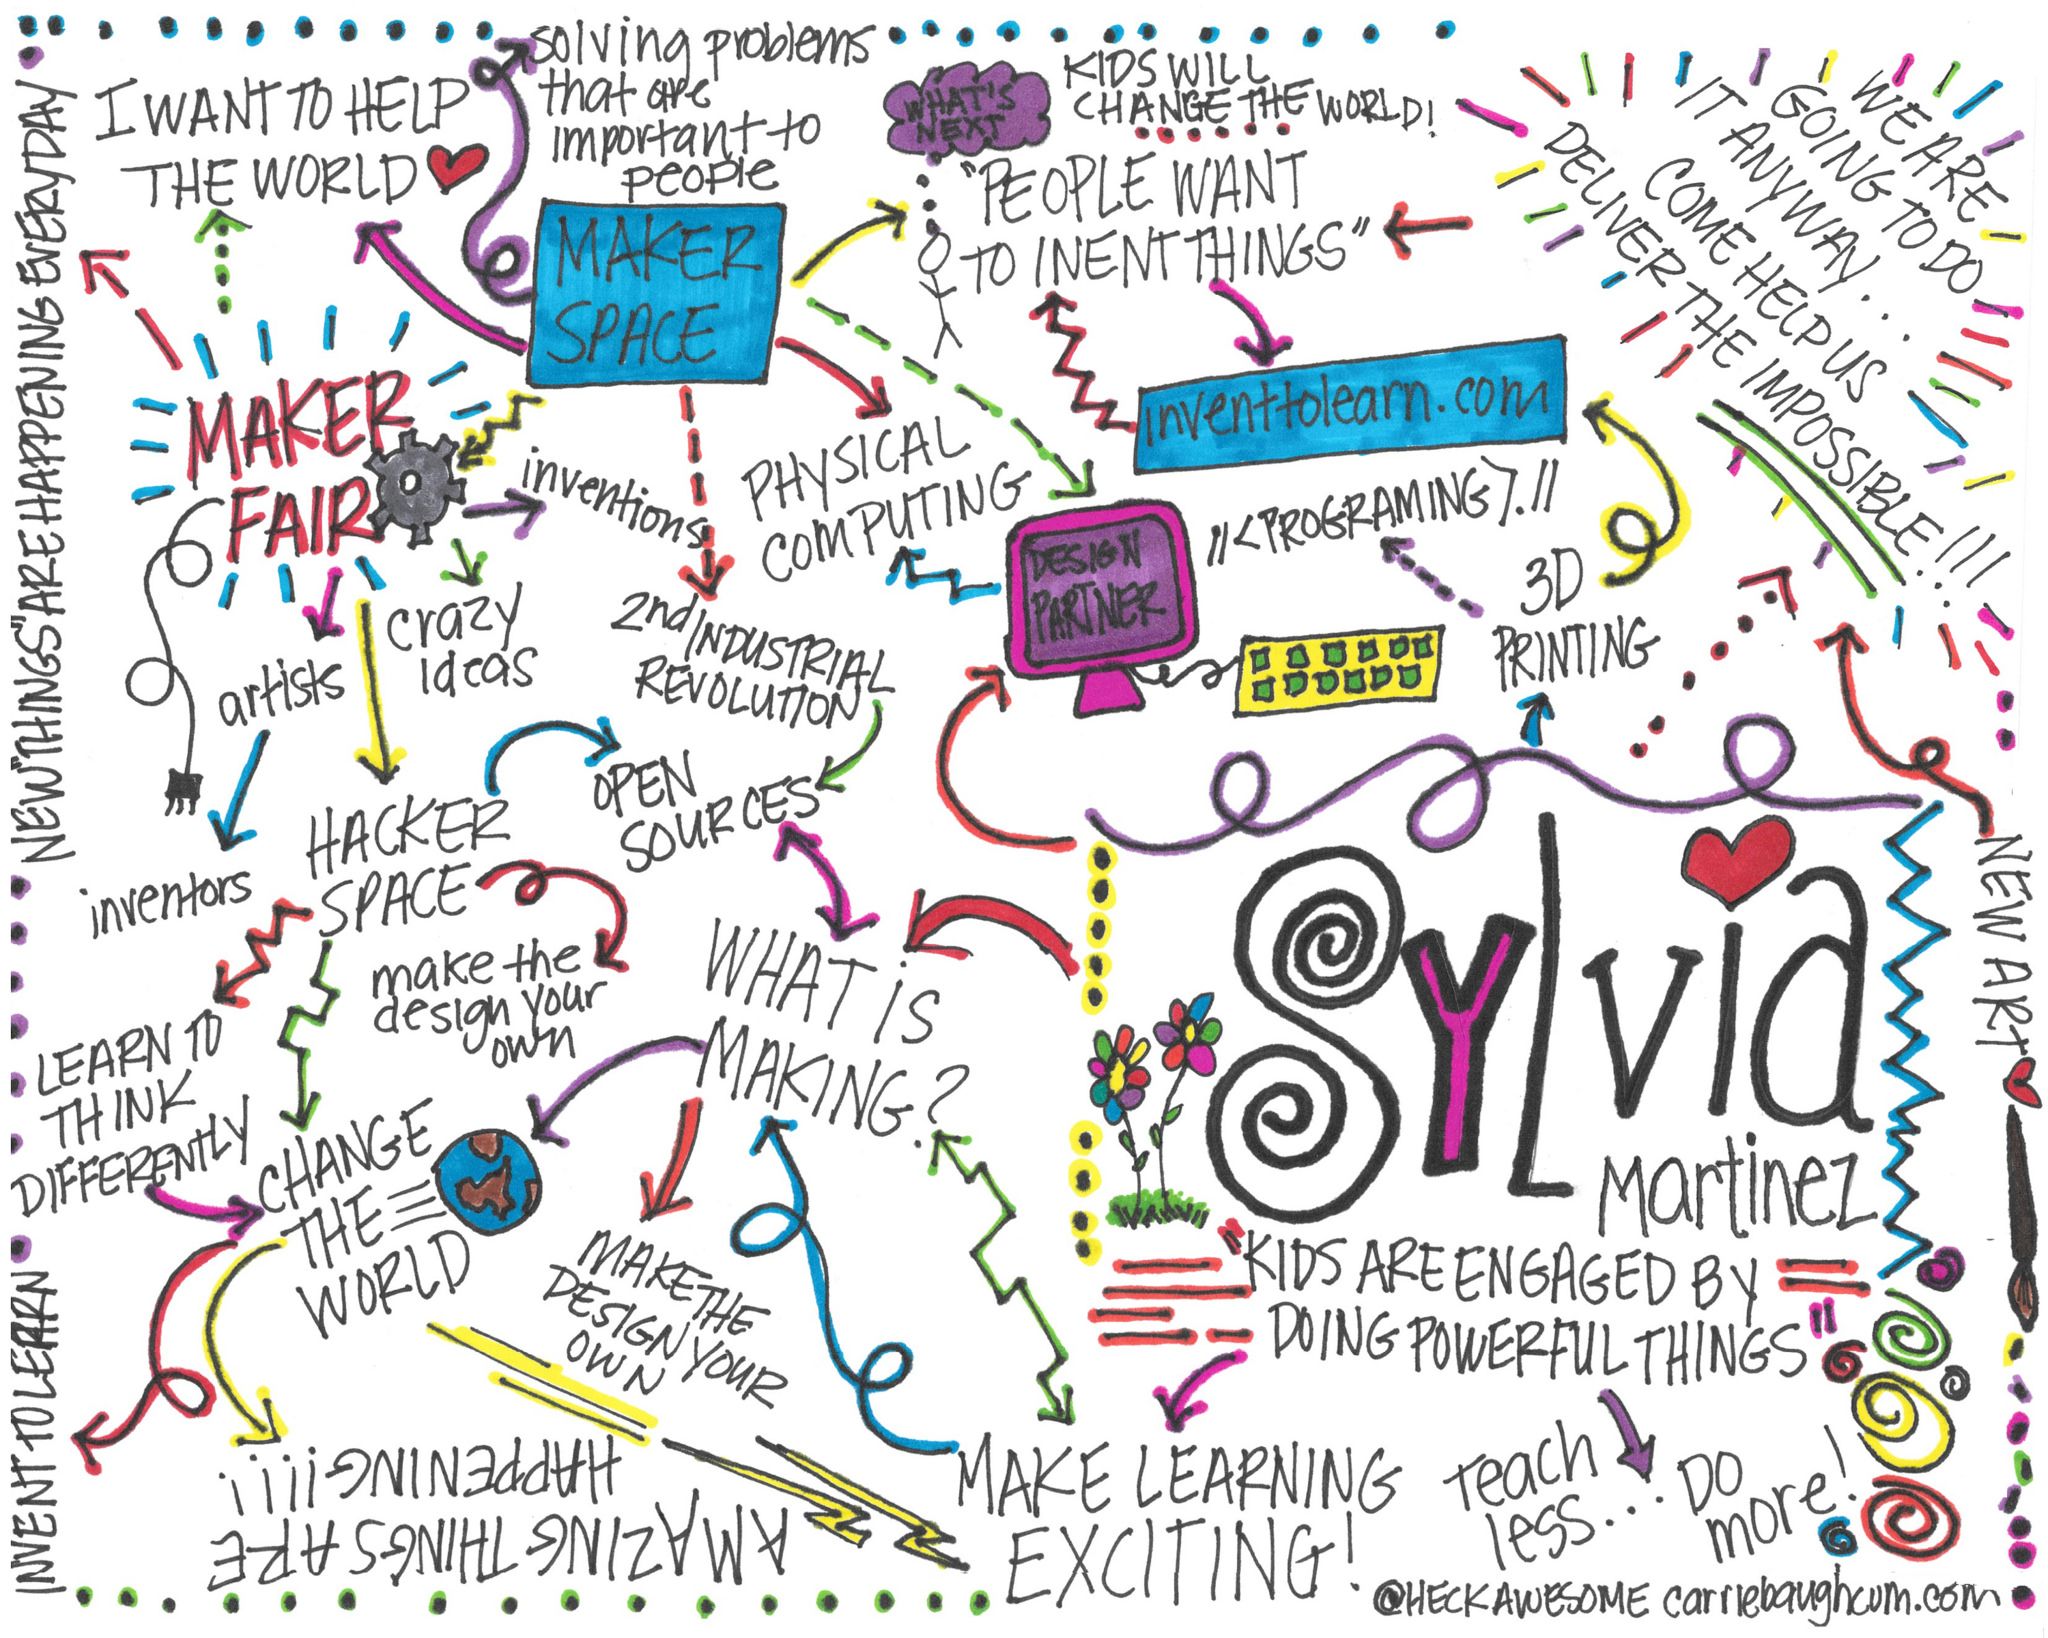 NEW "THINGS" ARE HAPPENING EVERYDAY
I WANT TO HELP
THE WORLD
solving problems
that are
important to
people
WHAT'S
NEXT
KIDS WILL
CHANGE THE WORLD!
"PEOPLE WANT
TO INENT THINGS"
WE ARE
GOING TO DO
IT ANYWAY...
COME HELP US
DELIVER THE IMPOSSIBLE!!!!
MAKER
SPACE
MAKER
FAIR
inventions
crazy
ideas
artists
inventors
PHYSICAL
COMPUTING
inventtolearn.com
//<PROGRAMING>.//
DESIGN
PARTNER
3D
PRINTING
2nd INDUSTRIAL
REVOLUTION
OPEN
SOURCES
HACKER
SPACE
make the
design your
own
WHAT iS
MAKING?
LEARN TO
THINK
DIFFERENTLY
CHANGE
THE
WORLD
MAKE THE
DESIGN YOUR
OWN
INVENT TO LEARN
AMAZING THINGS ARE
HAPPENING!!!!
SYLVia
Martinez
NEW ART
"KIDS ARE ENGAGED BY
DOING POWERFUL THINGS"
MAKE LEARNING
EXCITING!
Teach
less...
DO
more!
@HECKAWESOME carriebaughcum.com